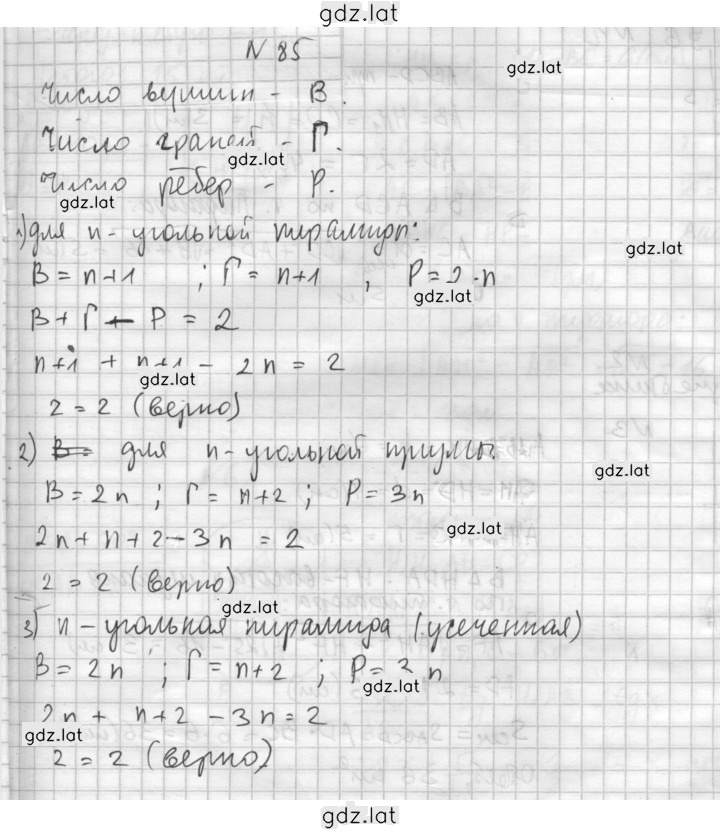 gdz.lat
N 85
gdz.lat
Число вершин - В.
Число граней - Г.
gdz.lat
Число рёбер - Р.
gdz.lat
1) для n-угольной пирамиды:
gdz.lat
В = n+1 ; Г = n+1 , Р = 2·n
gdz.lat
В + Г - Р = 2
n+1 + n+1 - 2n = 2
gdz.lat
2 = 2 (верно)
2) для n-угольной призмы:
gdz.lat
В = 2n ; Г = n+2 ; Р = 3n
gdz.lat
2n + n + 2 - 3n = 2
2 = 2 (верно)
gdz.lat
3) n-угольная пирамида (усеченная)
В = 2n ; Г = n+2 ; Р = 3n
gdz.lat
2n + n+2 - 3n = 2
gdz.lat
2 = 2 (верно)
gdz.lat